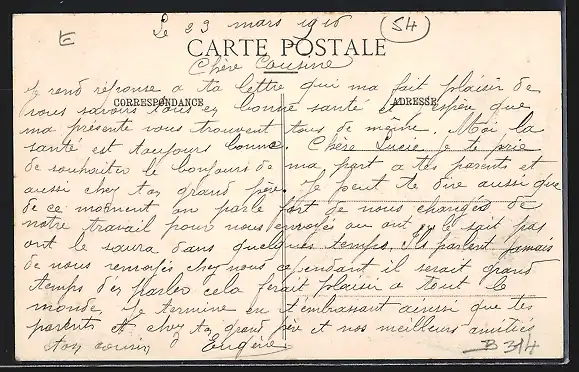 E
Le 23 mars 1916
54
CARTE POSTALE
Chère Cousine
CORRESPONDANCE
ADRESSE
Je rend réponse a ta lettre qui ma fait plaisir de
vous savoirs tous en bonne santé et espère que
ma présente vous trouvent tous de même. Moi la
santé est toujours bonne. Chère Lucie Je te prie
de souhaiter le bonjours de ma part a tes parents et
aussi chez ton grand père. Je peut te dire aussi que
de ce moment on parle fort de nous changés de
notre travail pour nous envoyés ou ont ne le sait pas
ont le saura dans quelques temps. Ils parlent jamais
de nous renvoyés chez nous cependant il serait grand
temps d'en parler cela ferait plaisir a tout le
monde. Je termine en t'embrassant ainsi que tes
parents et chez ton grand père et nos meilleurs amitiés
ton cousin Eugène
B 314